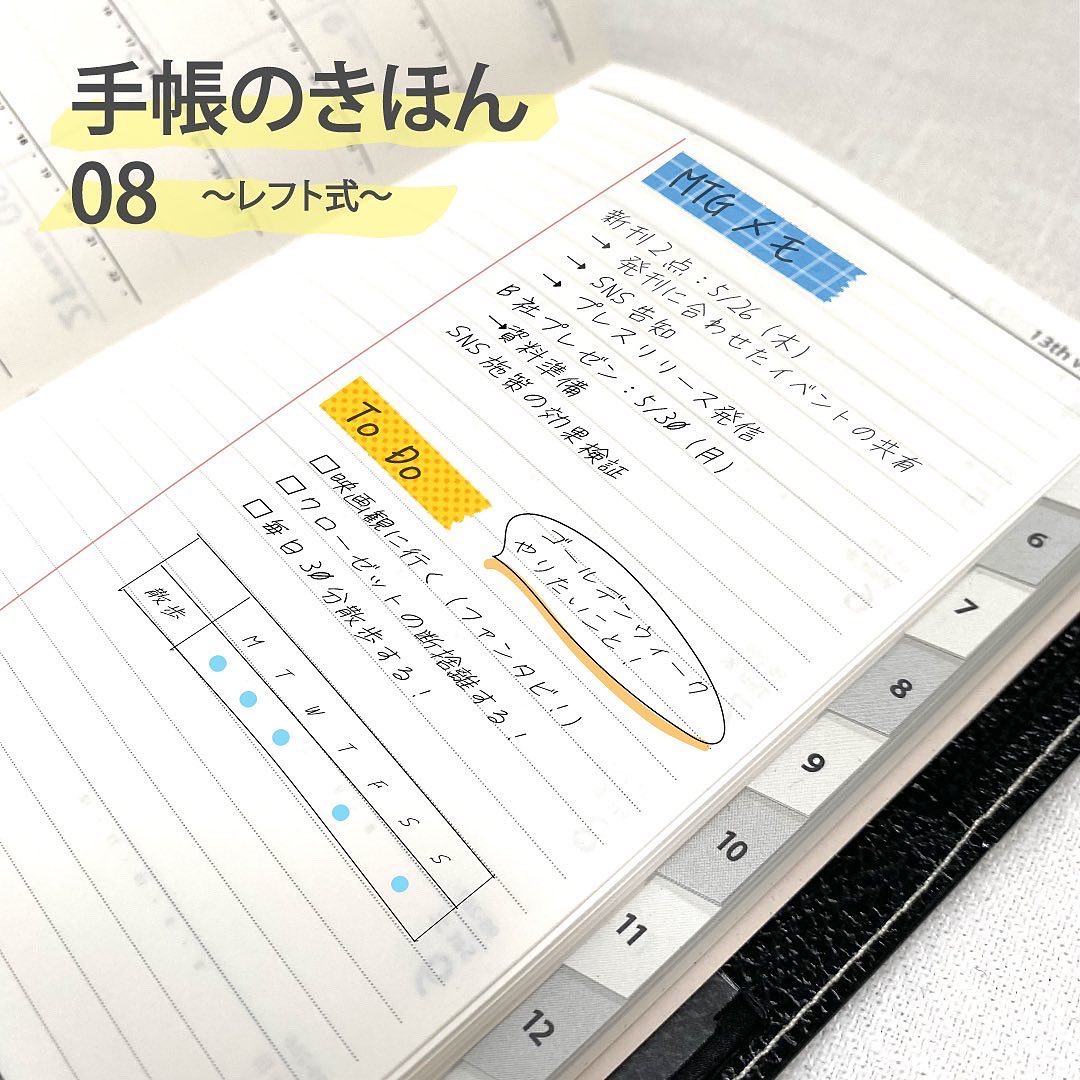 手帳のきほん
08 〜レフト式〜
MTG メモ
新刊2点：5/26（木）
→ 発刊に合わせたイベントの共有
→ SNS告知
→ プレスリリース発信
B社プレゼン：5/30（月）
→資料準備
SNS施策の効果検証
To Do
□映画観に行く（ファンタビ!!）
□クローゼットの断捨離する！
□毎日30分散歩する！
ゴールデンウィーク
やりたいこと！
M T W T F S S
散歩
13th
6
7
8
9
10
11
12